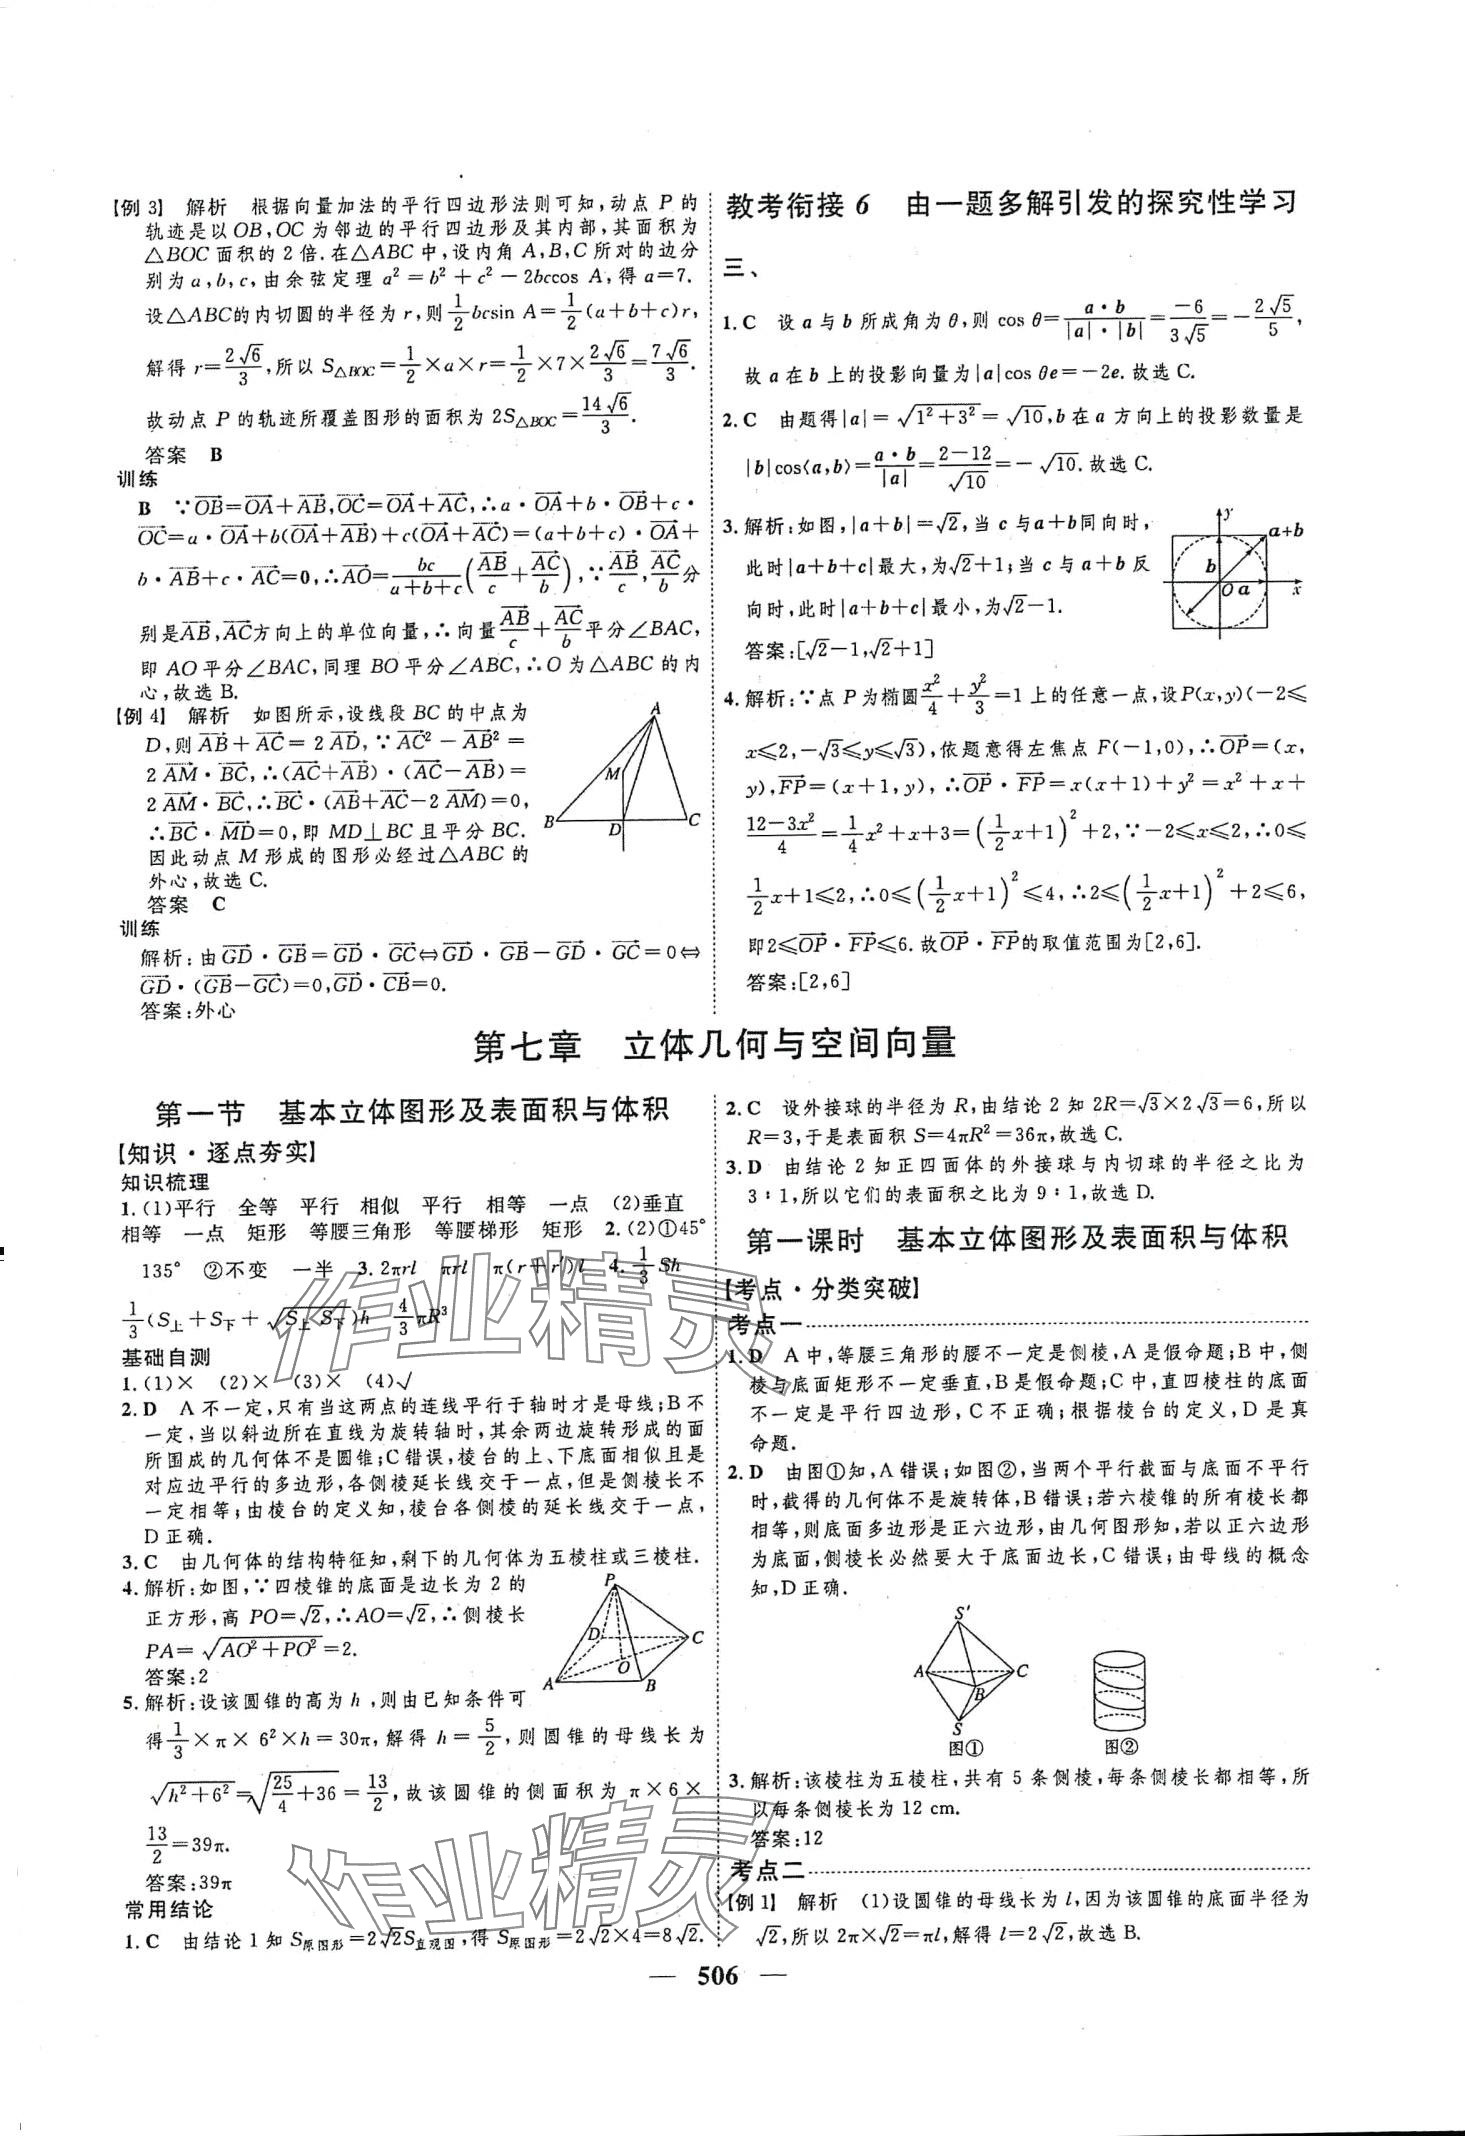 【例 3】 解析 根据向量加法的平行四边形法则可知,动点 P 的
轨迹是以 OB,OC 为邻边的平行四边形及其内部,其面积为
△BOC 面积的 2 倍.在△ABC 中,设内角 A,B,C 所对的边分
别为 a,b,c,由余弦定理 a²=b²+c²-2bccos A,得 a=7.
设△ABC的内切圆的半径为 r,则 1/2 bcsin A=1/2(a+b+c)r,
解得 r=2√6/3,所以 S△BOC=1/2×a×r=1/2×7×2√6/3=7√6/3.
故动点 P 的轨迹所覆盖图形的面积为 2S△BOC=14√6/3.
答案 B
训练
B ∵OB→=OA→+AB→,OC→=OA→+AC→,∴a·OA→+b·OB→+c·
OC→=a·OA→+b(OA→+AB→)+c(OA→+AC→)=(a+b+c)·OA→+
b·AB→+c·AC→=0,∴AO→=bc/(a+b+c)(AB→/c+AC→/b),∵AB→/c,AC→/b分
别是AB→,AC→方向上的单位向量,∴向量AB→/c+AC→/b平分∠BAC,
即 AO 平分∠BAC,同理 BO 平分∠ABC,∴O 为△ABC 的内
心,故选 B.
【例 4】 解析 如图所示,设线段 BC 的中点为
D,则AB→+AC→=2AD→,∵AC→²-AB→²=
2AM→·BC→,∴(AC→+AB→)·(AC→-AB→)=
2AM→·BC→,∴BC→·(AB→+AC→-2AM→)=0,
∴BC→·MD→=0,即 MD⊥BC 且平分 BC.
因此动点 M 形成的图形必经过△ABC 的
外心,故选 C.
A
M
B
D
C
答案 C
训练
解析:由GD→·GB→=GD→·GC→⇔GD→·GB→-GD→·GC→=0⇔
GD→·(GB→-GC→)=0,GD→·CB→=0.
答案:外心
教考衔接 6 由一题多解引发的探究性学习
三、
1.C 设 a 与 b 所成角为 θ,则 cos θ=a·b/(|a|·|b|)=-6/(3√5)=-2√5/5,
故 a 在 b 上的投影向量为|a|cos θe=-2e.故选 C.
2.C 由题得|a|=√(1²+3²)=√10,b 在 a 方向上的投影数量是
|b|cos⟨a,b⟩=a·b/|a|=(2-12)/√10=-√10.故选 C.
3.解析:如图,|a+b|=√2,当 c 与a+b同向时,
此时|a+b+c|最大,为√2+1;当 c 与 a+b 反
向时,此时|a+b+c|最小,为√2-1.
答案:[√2-1,√2+1]
y
a+b
b
O
a
x
4.解析:∵点 P 为椭圆x²/4+y²/3=1 上的任意一点,设P(x,y)(-2≤
x≤2,-√3≤y≤√3),依题意得左焦点 F(-1,0),∴OP→=(x,
y),FP→=(x+1,y),∴OP→·FP→=x(x+1)+y²=x²+x+
(12-3x²)/4=1/4 x²+x+3=(1/2 x+1)²+2,∵-2≤x≤2,∴0≤
1/2 x+1≤2,∴0≤(1/2 x+1)²≤4,∴2≤(1/2 x+1)²+2≤6,
即2≤OP→·FP→≤6.故OP→·FP→的取值范围为[2,6].
答案:[2,6]
第七章 立体几何与空间向量
第一节 基本立体图形及表面积与体积
【知识·逐点夯实】
知识梳理
1.(1)平行 全等 平行 相似 平行 相等 一点 (2)垂直
相等 一点 矩形 等腰三角形 等腰梯形 矩形 2.(2)①45°
135° ②不变 一半 3.2πrl πrl π(r+r′)l 4.1/3 Sh
1/3(S上+S下+√(S上S下))h 4/3 πR³
基础自测
1.(1)× (2)× (3)× (4)√
2.D A 不一定,只有当这两点的连线平行于轴时才是母线;B 不
一定,当以斜边所在直线为旋转轴时,其余两边旋转形成的面
所围成的几何体不是圆锥;C错误,棱台的上、下底面相似且是
对应边平行的多边形,各侧棱延长线交于一点,但是侧棱长不
一定相等;由棱台的定义知,棱台各侧棱的延长线交于一点,
D正确.
3.C 由几何体的结构特征知,剩下的几何体为五棱柱或三棱柱.
4.解析:如图,∵四棱锥的底面是边长为 2 的
正方形,高 PO=√2,∴AO=√2,∴侧棱长
PA=√(AO²+PO²)=2.
答案:2
P
D
C
O
A
B
5.解析:设该圆锥的高为 h,则由已知条件可
得1/3×π×6²×h=30π,解得 h=5/2,则圆锥的母线长为
√(h²+6²)=√(25/4+36)=13/2,故该圆锥的侧面积为 π×6×
13/2=39π.
答案:39π
常用结论
1.C 由结论 1 知 S原图形=2√2S直观图,得 S原图形=2√2×4=8√2.
2.C 设外接球的半径为 R,由结论 2 知 2R=√3×2√3=6,所以
R=3,于是表面积 S=4πR²=36π,故选 C.
3.D 由结论 2 知正四面体的外接球与内切球的半径之比为
3∶1,所以它们的表面积之比为 9∶1,故选 D.
第一课时 基本立体图形及表面积与体积
【考点·分类突破】
考点一
1.D A 中,等腰三角形的腰不一定是侧棱,A 是假命题;B 中,侧
棱与底面矩形不一定垂直,B 是假命题;C 中,直四棱柱的底面
不一定是平行四边形,C 不正确;根据棱台的定义,D 是真
命题.
2.D 由图①知,A 错误;如图②,当两个平行截面与底面不平行
时,截得的几何体不是旋转体,B 错误;若六棱锥的所有棱长都
相等,则底面多边形是正六边形,由几何图形知,若以正六边形
为底面,侧棱长必然要大于底面边长,C 错误;由母线的概念
知,D正确.
S′
A
C
B
S
图①
图②
3.解析:该棱柱为五棱柱,共有 5 条侧棱,每条侧棱长都相等,所
以每条侧棱长为 12 cm.
答案:12
考点二
【例 1】 解析 (1)设圆锥的母线长为 l,因为该圆锥的底面半径为
√2,所以 2π×√2=πl,解得 l=2√2,故选 B.
— 506 —
作业精灵
作业精灵